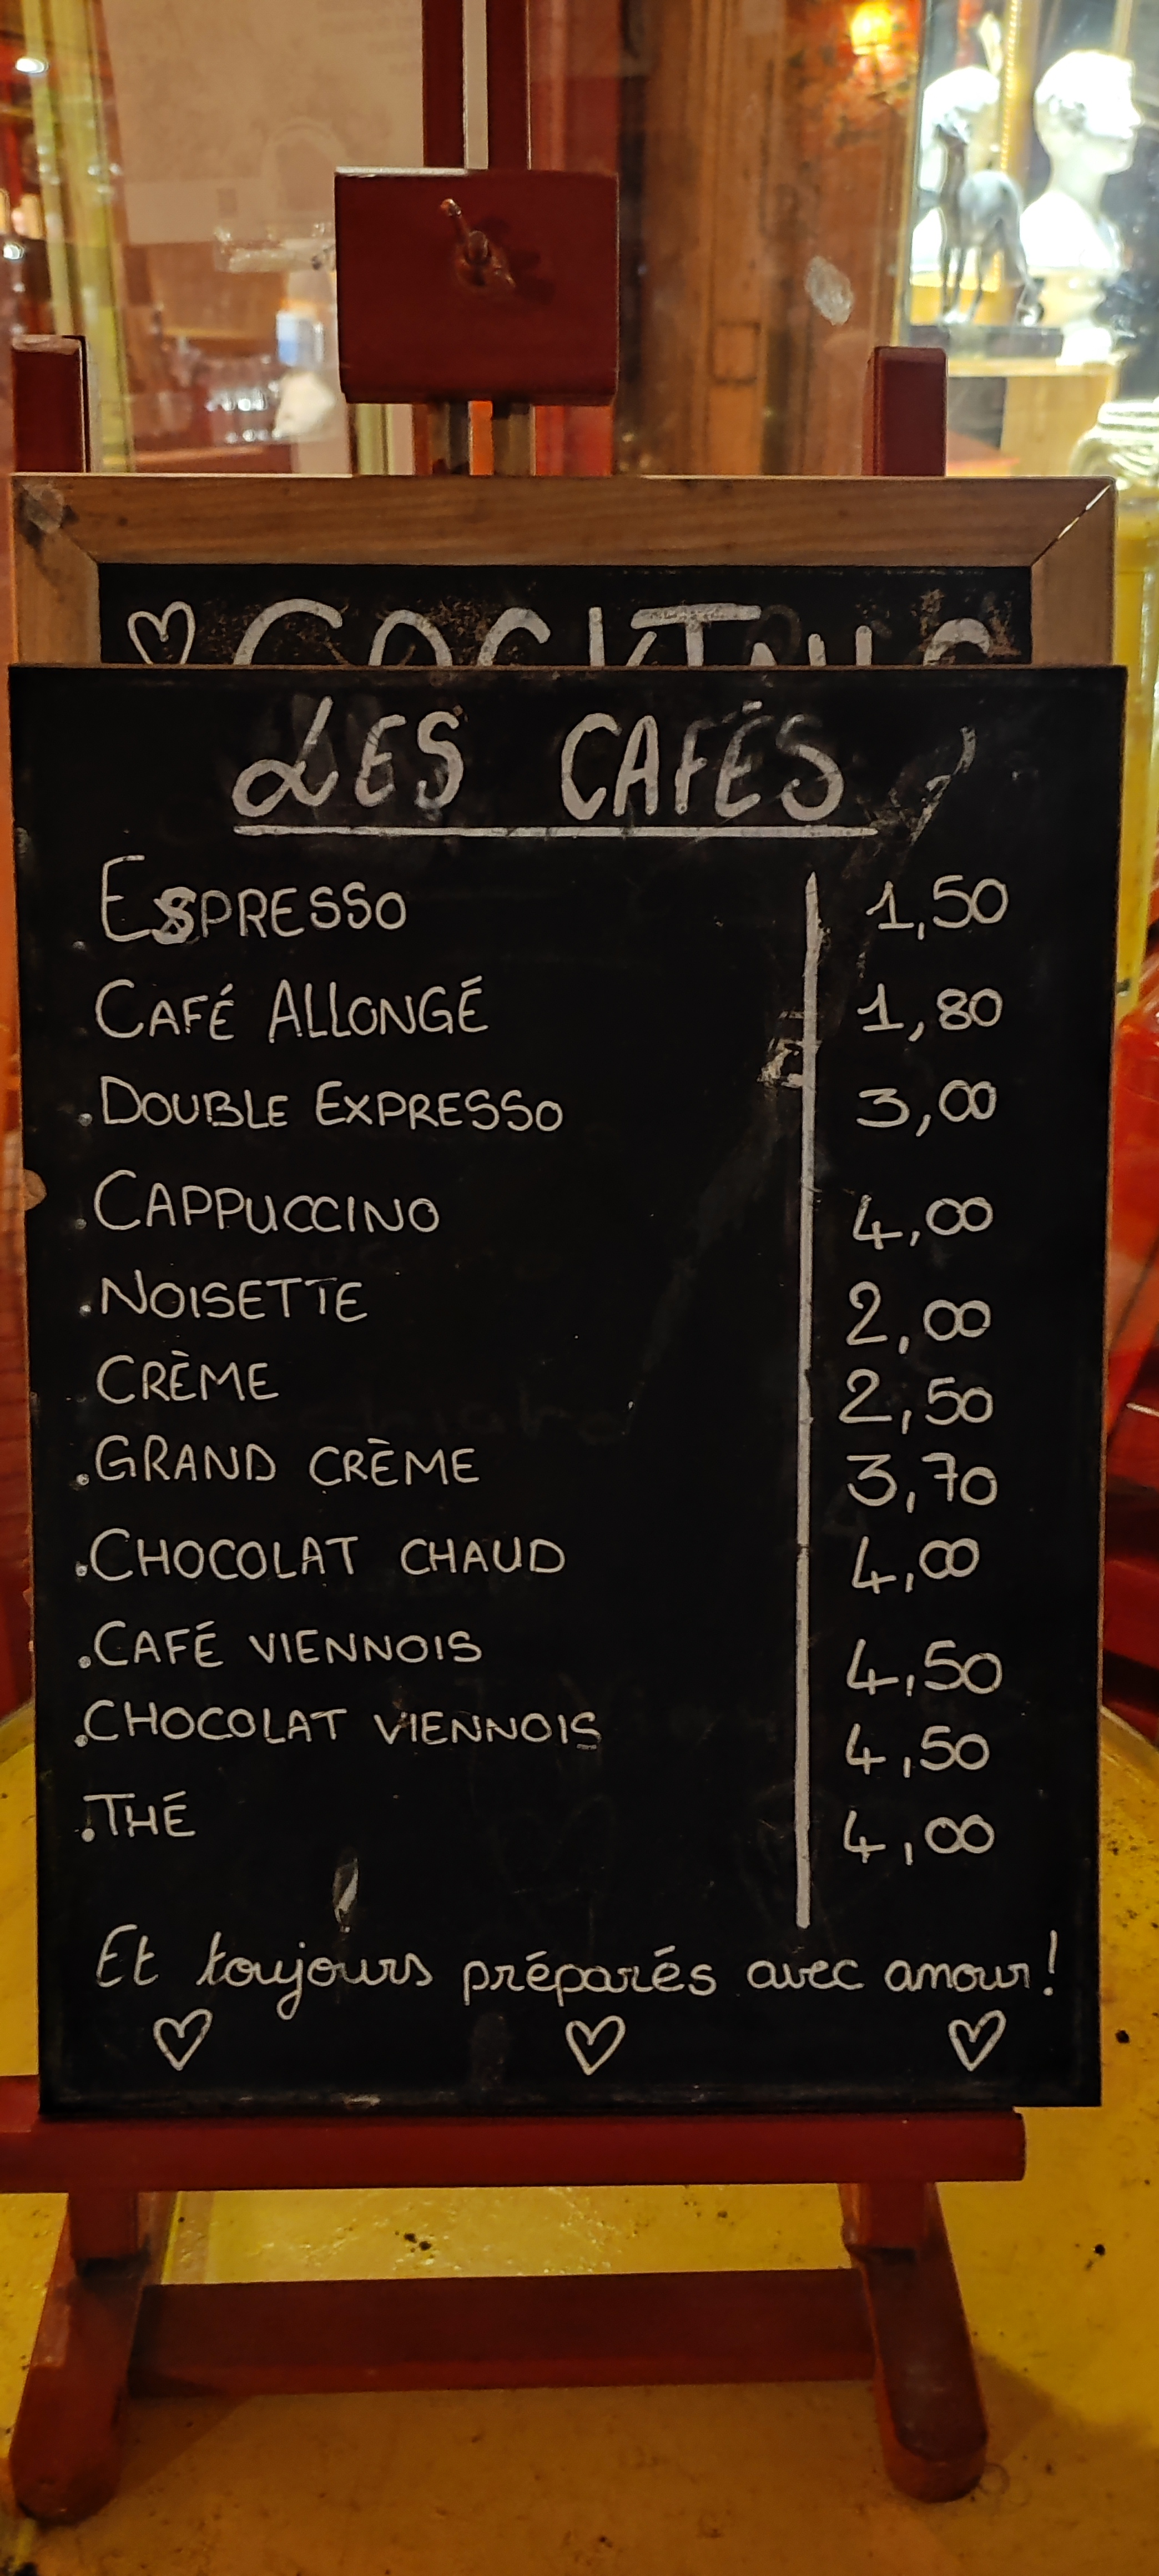 LES CAFÉS
ESPRESSO 1,50
CAFÉ ALLONGÉ 1,80
.DOUBLE EXPRESSO 3,00
.CAPPUCCINO 4,00
.NOISETTE 2,00
CRÈME 2,50
.GRAND CRÈME 3,70
.CHOCOLAT CHAUD 4,00
.CAFÉ VIENNOIS 4,50
.CHOCOLAT VIENNOIS 4,50
.THÉ 4,00
Et toujours préparés avec amour!